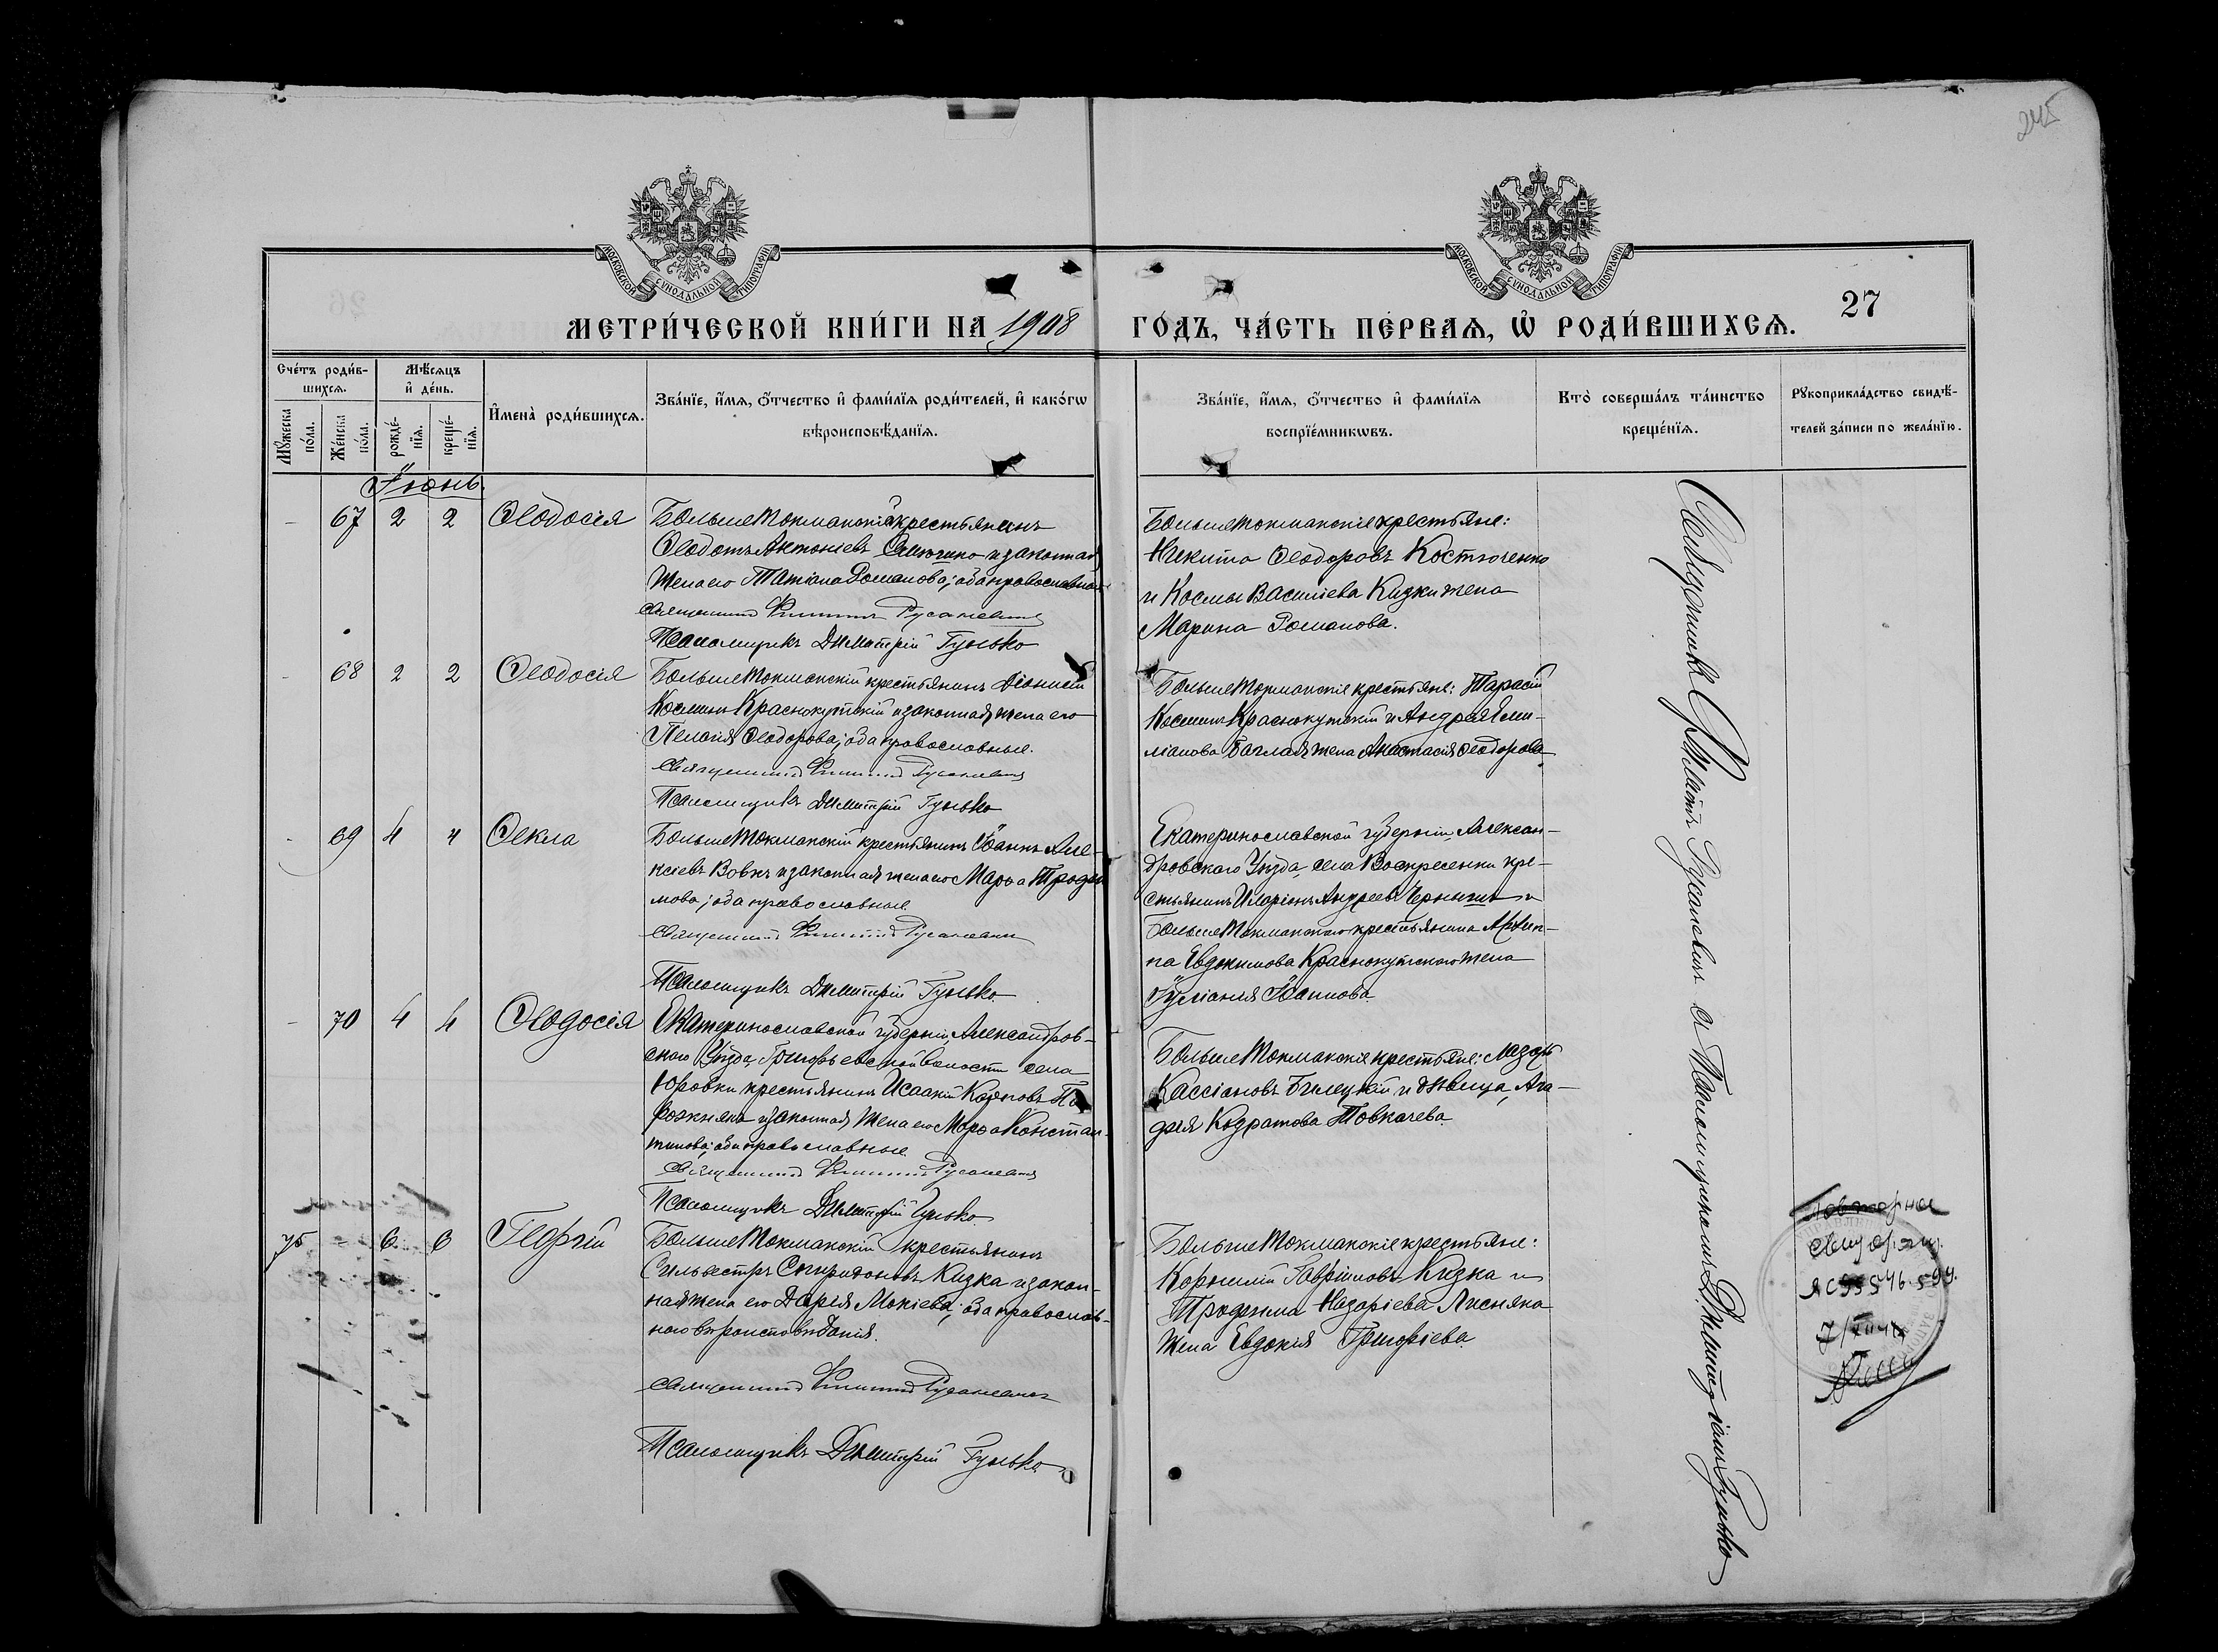 245
МОСКОВСКОЙ СѴНОДАЛЬНОЙ ТИПОГРАФІИ
МОСКОВСКОЙ СѴНОДАЛЬНОЙ ТИПОГРАФІИ
МЕТРИ́ЧЕСКОЙ КНИ́ГИ НА 1908 ГО́ДЪ, ЧА́СТЬ ПЕ́РВАѦ, Ѡ҆ РОДИ́ВШИХСѦ.
27
Сче́тъ роди́в-
шихсѧ.
Мѹ́жеска по́ла.
Же́нска по́ла.
Мѣ́сѧцъ
и҆ де́нь.
рожде́-
нїѧ.
креще́-
нїѧ.
И҆мена̀ роди́вшихсѧ.
Зва́нїе, и҆́мѧ, ѻ҆́тчество и҆ фами́лїѧ роди́телей, и҆ како́гѡ
вѣроисповѣ́данїѧ.
Зва́нїе, и҆́мѧ, ѻ҆́тчество и҆ фами́лїѧ
воспрїе́мникѡвъ.
Кто̀ соверша́лъ та́инство
креще́нїѧ.
Рѹкоприкла́дство свидѣ́-
телей за́писи по жела́нїю.
Іюнь.
- 67 2 2 Ѳеодосія
БольшеТокмакскій крестьянинъ
Ѳеодотъ Антоніевъ и законная
жена его Татіана Романова; оба православные
Священникъ Филиппъ Русаневичъ
Псаломщикъ Димитрій Гунько
БольшеТокмакскіе крестьяне:
Никита Ѳеодоровъ Костюченко
и Космы Василіева Кизки жена
Марина Романова.
- 68 2 2 Ѳеодосія
БольшеТокмакскій крестьянинъ Діонисій
Косминъ Краснокутскій и законная жена его
Пелагія Ѳеодорова; оба православные.
Священникъ Филиппъ Русаневичъ
Псаломщикъ Димитрій Гунько
БольшеТокмакскіе крестьяне: Тарасій
Косминъ Краснокутскій и Андрея Еми-
ліанова жена Анастасія Ѳеодорова
- 69 4 4 Ѳекла
БольшеТокмакскій крестьянинъ Іоаннъ Але-
ксіевъ Вовкъ и законная жена его Марѳа Трофи
мова; оба православные
Священникъ Филиппъ Русаневичъ
Псаломщикъ Димитрій Гунько
Екатеринославской губерніи, Алексан-
дровскаго Уѣзда, села Воскресенки кре-
стьянинъ Иларіонъ Андреевъ и
БольшеТокмакскаго крестьянина Архип-
па Евдокимова Краснокутскаго жена
Іуліанія Іоаннова.
- 70 4 4 Ѳеодосія
Екатеринославской губерніи, Александров-
скаго Уѣзда, Григорьевской волости села
Юровки крестьянинъ Исаакій Карповъ
и законная жена его Марѳа Констан-
тинова; оба православные.
Священникъ Филиппъ Русаневичъ
Псаломщикъ Димитрій Гунько
БольшеТокмакскіе крестьяне: Лазарь
Кассіановъ Билецкій и дѣвица Ага-
фія Кодратова Товкачева.
75 - 6 6 Георгій
БольшеТокмакскій крестьянинъ
Сильвестръ Спиридоновъ Кизка и закон-
ная жена его Дарія Мокіева; оба православ-
наго вѣроисповѣданія.
Священникъ Филиппъ Русаневичъ
Псаломщикъ Димитрій Гунько
БольшеТокмакскіе крестьяне:
Корнилій Гавріиловъ Кизка и
Трофима Назаріева Лисняка
жена Евдокія Григоріева.
Священникъ Филиппъ Русаневичъ съ Псаломщикомъ Димитріемъ Гунько
Повторное